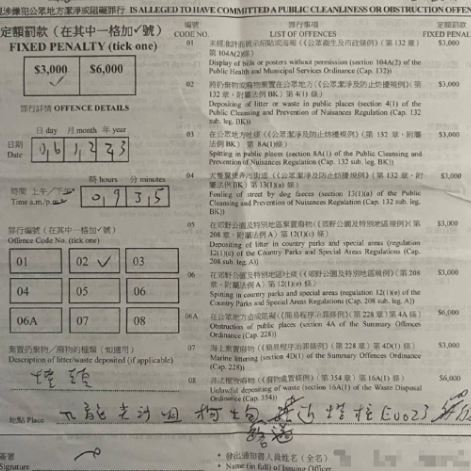 涉嫌犯公眾地方潔淨或阻礙罪行 IS ALLEGED TO HAVE COMMITTED A PUBLIC CLEANLINESS OR OBSTRUCTION OFFEN
定額罰款（在其中一格加✓號）
FIXED PENALTY (tick one)
$3,000 $6,000
✓
罪行詳情 OFFENCE DETAILS
日 day 月 month 年 year
日期
Date
0 6 1 2 2 3
時 hours 分 minutes
時間 上午／下午
Time a.m./p.m.
0 9 3 5
罪行編號（在其中一格加✓號）
Offence Code No. (tick one)
01 02 ✓ 03
04 05 06
06A 07 08
棄置的棄物／廢物的種類（如適用）
Description of litter/waste deposited (if applicable)
地點 Place
編號
CODE NO.
罪行事項
LIST OF OFFENCES
定額罰款
FIXED PENAL
01 未經准許展示招貼或海報（《公眾衞生及市政條例》（第 132 章）
第 104A(2)條） $3,000
Display of bills or posters without permission (section 104A(2) of the
Public Health and Municipal Services Ordinance (Cap. 132))
02 將扔棄物或廢物棄置在公眾地方（《公眾潔淨及防止妨擾規例》（第
132 章，附屬法例 BK）第 4(1) 條） $3,000
Depositing of litter or waste in public places (section 4(1) of the
Public Cleansing and Prevention of Nuisances Regulation (Cap. 132
sub. leg. BK))
03 在公眾地方吐痰（《公眾潔淨及防止妨擾規例》（第 132 章，附屬
法例 BK）第 8A(1) 條） $3,000
Spitting in public places (section 8A(1) of the Public Cleansing and
Prevention of Nuisances Regulation (Cap. 132 sub. leg. BK))
04 犬隻糞便弄污街道（《公眾潔淨及防止妨擾規例》（第 132 章，附
屬法例 BK）第 13(1)(a) 條） $3,000
Fouling of street by dog faeces (section 13(1)(a) of the Public
Cleansing and Prevention of Nuisances Regulation (Cap. 132 sub. leg.
BK))
05 在郊野公園及特別地區棄置扔棄物（《郊野公園及特別地區規例》（第
208 章，附屬法例 A）第 12(1)(c) 條） $3,000
Depositing of litter in country parks and special areas (regulation
12(1)(c) of the Country Parks and Special Areas Regulations (Cap.
208 sub. leg. A))
06 在郊野公園及特別地區吐痰（《郊野公園及特別地區規例》（第 208
章，附屬法例 A）第 12(1)(e) 條） $3,000
Spitting in country parks and special areas (regulation 12(1)(e) of the
Country Parks and Special Areas Regulations (Cap. 208 sub. leg. A))
06A 在公眾地方造成阻礙（《簡易程序治罪條例》（第 228 章）第 4A 條） $6,000
Obstruction of public places (section 4A of the Summary Offences
Ordinance (Cap. 228))
07 海上棄置廢物（《簡易程序治罪條例》（第 228 章）第 4D(1) 條） $3,000
Marine littering (section 4D(1) of the Summary Offences Ordinance
(Cap. 228))
08 非法擺放廢物（《廢物處置條例》（第 354 章）第 16A(1) 條） $6,000
Unlawful depositing of waste (section 16A(1) of the Waste Disposal
Ordinance (Cap. 354))
九龍尖沙咀柯士甸
近燈柱 E0023
簽署
Signature
發出通知書人員姓名（全名）
Name (in full) of Issuing Officer